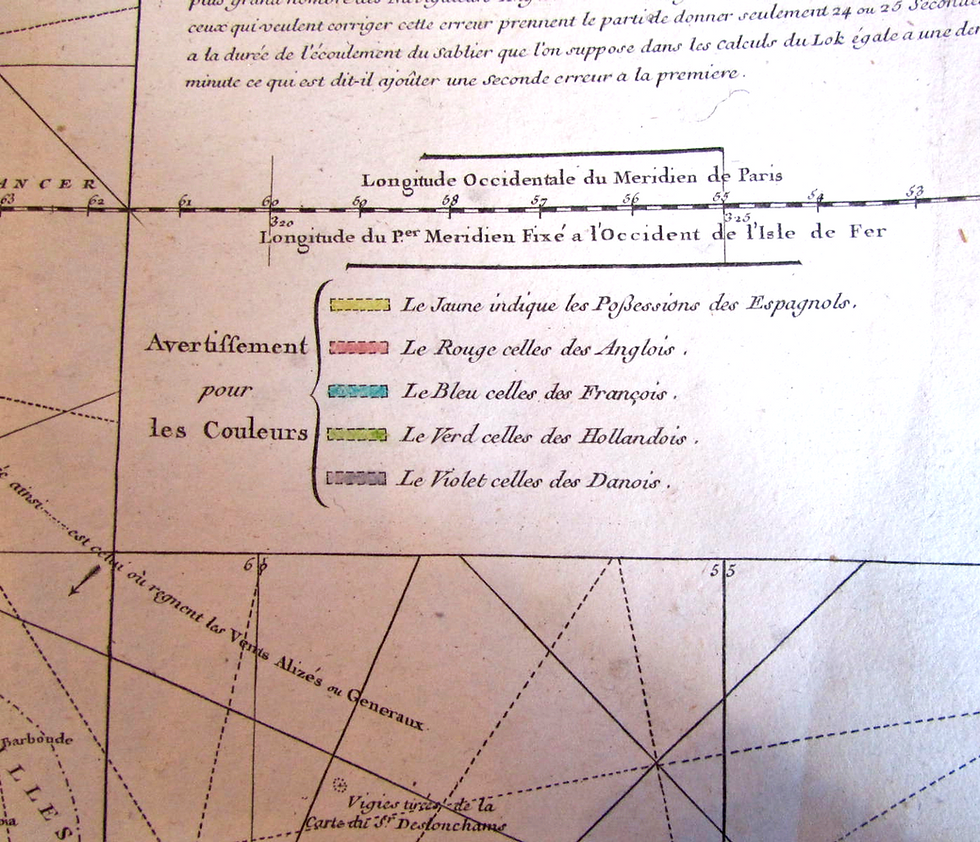 ceux qui veulent corriger cette erreur prennent le parti de donner seulement 24 ou 25 Secondes
a la durée de l'écoulement du Sablier que l'on suppose dans les Calculs du Lok égale a une
minute ce qui est dit-il ajoûter une seconde erreur a la premiere.
Longitude Occidentale du Meridien de Paris
ANCER
63 62 61 60 59 58 57 56 55 54 53
320 325
Longitude du P.er Meridien Fixé a l'Occident de l'Isle de Fer
Avertissement
pour
les Couleurs
Le Jaune indique les Poßessions des Espagnols.
Le Rouge celles des Anglois.
Le Bleu celles des François.
Le Verd celles des Hollandois.
Le Violet celles des Danois.
ainsi est celui où regnent les Vents Alizés ou Generaux
60 55
Barboude
LLES
Vigies tirées de la
Carte du Sr. Deslonchams